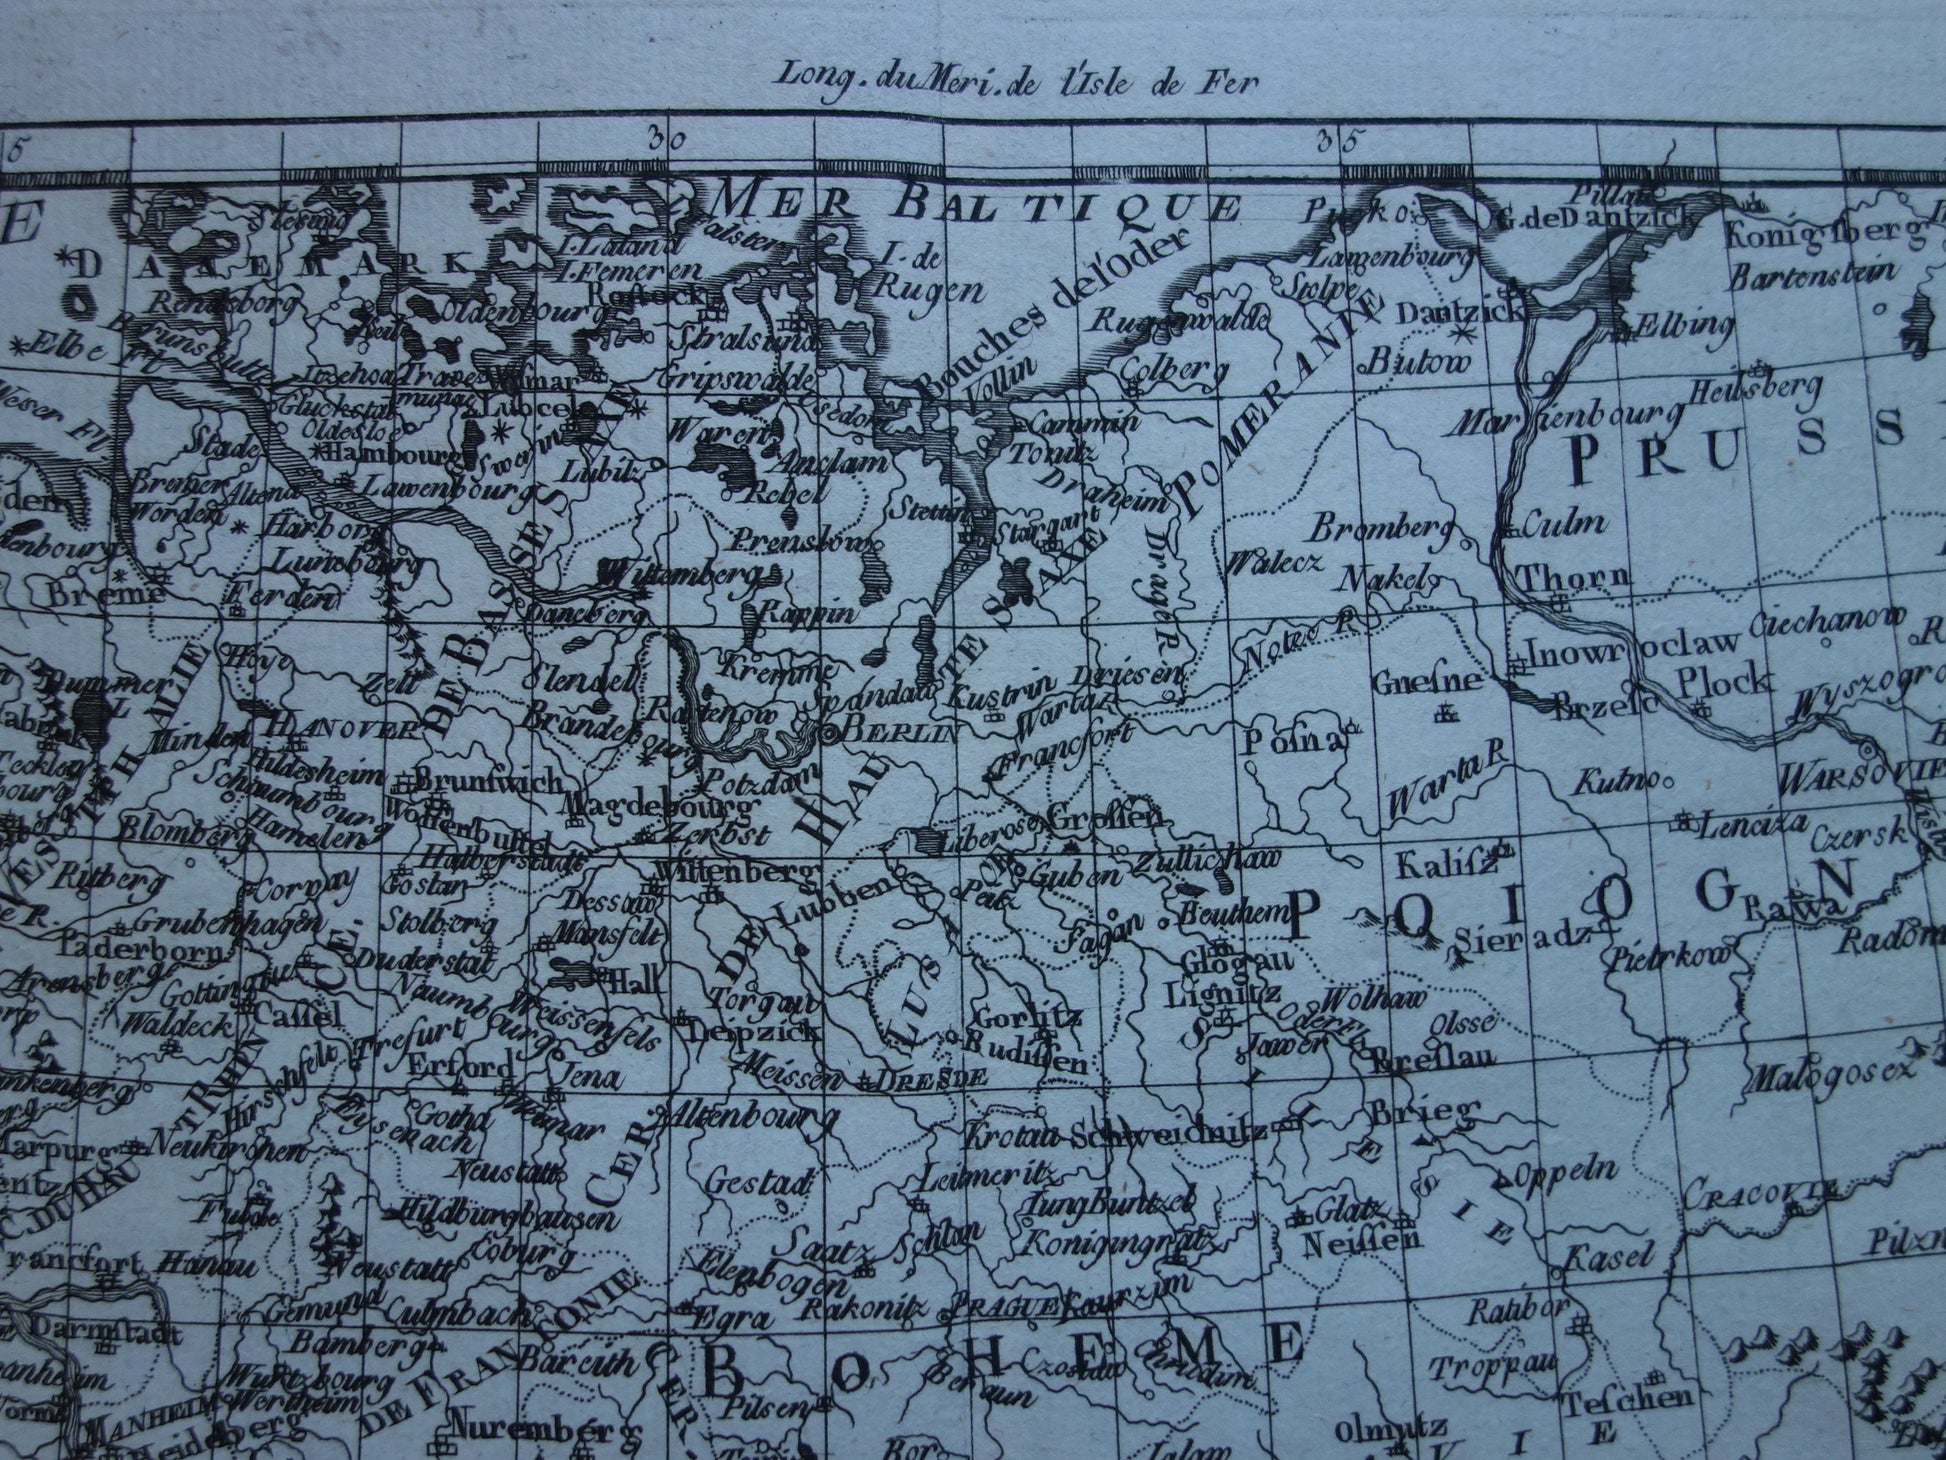 Long. du Meri. de l'Isle de Fer
5 30 35
MER BALTIQUE
E
DANEMARK
Slesvig
I. Laland
I. Femeren
Falster
I. de
Rugen
Bouches de l'Oder
Pillau
G. de Dantzick
Konigsberg
Bartenstein
Rendsborg
Oldenbourg
Rostock
Stralsund
Rugenwalde
Lawenbourg
Stolpe
Dantzick
Elbing
Elbe Fl.
Brunsbutte
Keil
Itzehoa
Wismar
Gripswalde
Vollin
Colberg
Butow
Heilsberg
Weser Fl.
Gluckstat
Lubeck
Usedom
Cammin
Marienbourg
Stade
Oldesloe
Hambourg
Swerin
Waren
Anclam
Tonitz
POMERANIE
PRUSS
Bremer
Worden
Altena
Lawenbourg
Lubitz
Rebel
Draheim
Stettin
Stargart
Harborg
Lunebourg
Prenslow
Walecz
Bromberg
Culm
Breme
Ferden
Wittemberg
Nakel
Thorn
Daneberg
Rappin
Drage R.
Notec R.
Ciechanow
Hoye
Zell
DE BASSE SAXE
Stendel
Kremme
Driesen
Inowroclaw
Dummer L
Ratenow
Spandau
Custrin
Warta R.
Gnesne
Brzesc
Plock
Wyszogro
Minden
HANOVER
Brandebourg
BERLIN
Francfort
Posna
Hildesheim
Schaumbourg
Brunswich
Potzdam
Warta R
Kutno
WARSOVIE
WESTPHALIE
Hamelen
Wolfenbuttel
Magdebourg
Zerbst
Liberose
Crossen
Lenciza
Czersk
Blomberg
Halberstadt
Wittenberg
HAUTE SAXE
Guben
Zullichaw
Kalisz
Ritberg
Corvay
Goslar
Dessaw
Lubben
Peitz
POLOGN
Rawa
Grubenhagen
Stolberg
Mansfelt
Sagan
Beuthem
Sieradz
Radom
Paderborn
Duderstat
Hall
Glogau
Pietrkow
Arensberg
Gottingue
Naumbourg
Weissenfels
Torgau
LUSA
Lignitz
Wolhaw
Waldeck
Cassel
Trefurt
Leipzick
Gorlitz
Oder Fl.
Olsse
Hirschfelt
Erford
Jena
Meissen
DRESDE
Budissen
Jawer
Breslau
Malogosez
Eysenach
Gotha
Weimar
Altenbourg
Krotau
Schweidnitz
Brieg
Marpurg
Neukirchen
Neustatt
Gestad
Leitmeritz
SILESIE
Oppeln
CRACOVIE
Fulde
Hildburghausen
Jung Buntzel
Glatz
Neissen
Pilzn
Hanau
Neustatt
Coburg
Elenbogen
Saatz
Schlan
Koningratz
Kasel
Gemund
Culmbach
Egra
Rakonitz
PRAGUE
Kaurzim
Ratibor
Darmstadt
Bamberg
Bareith
CER. DE FRANCONIE
BOHEME
Beraun
Czoslaw
Chrudim
Troppau
MANHEIM
Wurtzbourg
Wertheim
Nuremberg
Pilsen
Teschen
Heidelberg
Olmutz
VIE